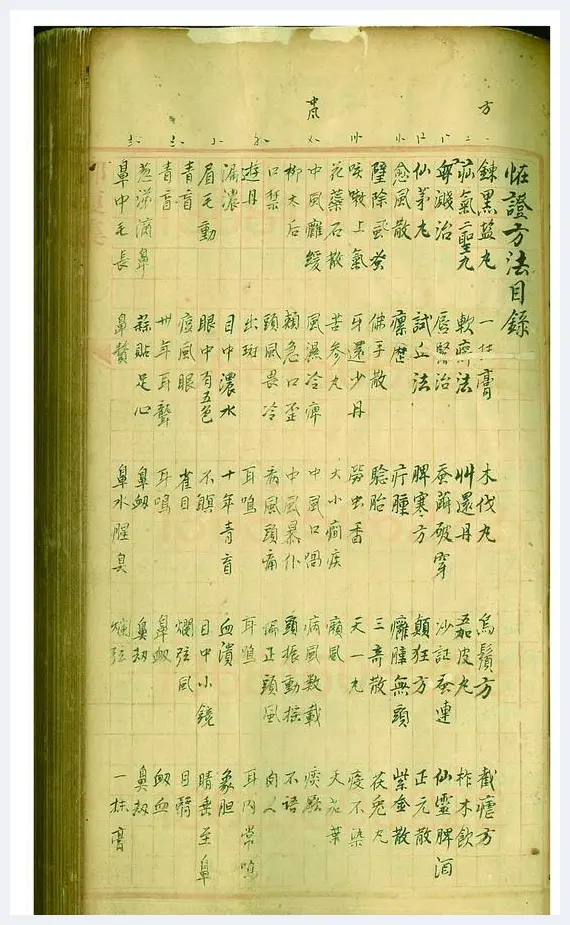 方
中風
恠證方法目錄
鍊黑盐丸 一抹膏 木伐丸 烏鬚方 截瘧方
疝氣二聖丸 軟癤法 艸還丹 五加皮丸 柞木飲
濺治 唇緊治 蚕繭破穿 沙証蚕連 仙靈脾酒
仙茅丸 試丘法 脾寒方 顛狂方 正元散
愈風散 瘰歴 疔腫 癰腫無頭 紫金散
壁除虱 佛手散 騐胎 三奇散 茯兎丸
咳嗽上氣 牙還少丹 勞虫香 天一丸 疫不染
花蕊石散 苦參丸 大小癎疾 癩風 大葉
中風癱緩 風濕冷痺 中風口喎 病風数載 痰厥
柳木后 頰急口歪 中風暴仆 頭振動搖 不語
口禁 頭風畏冷 病風頭痛 偏正頭風 向人
遊丹 出斑 耳鳴 耳鳴 耳内常鳴
漏濃 目中濃水 十年青盲 血潰 象胆
眉毛動 眼中有五色 不瞑 目中小鏡 睛垂至鼻
青盲 痘風眼 雀目 爛弦風 目翳
青盲 卅年耳聾 耳鳴 鼻衂 衂血
葱涕滴鼻 蒜貼足心 鼻衂 鼻衂 鼻衂
鼻中毛長 鼻贅 鼻水腥臭 爛弦 一抹膏